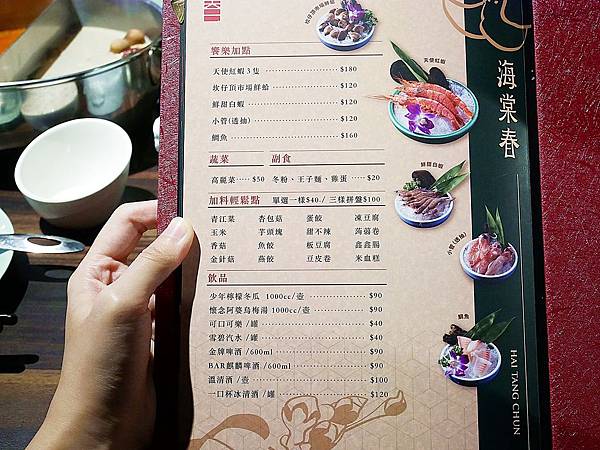 坎仔頂市場鮮蛤
饗樂加點
天使紅蝦3隻 $180
坎仔頂市場鮮蛤 $120
鮮甜白蝦 $120
小管(透抽) $120
鯛魚 $160
天使紅蝦
鮮甜白蝦
小管(透抽)
鯛魚
蔬菜 副食
高麗菜 $50 冬粉、王子麵、雞蛋 $20
加料輕鬆點 單選一樣$40./三樣拼盤$100
青江菜 杏包菇 蛋餃 凍豆腐
玉米 芋頭塊 甜不辣 蒟蒻卷
香菇 魚餃 板豆腐 鑫鑫腸
金針菇 燕餃 豆皮卷 米血糕
飲品
少年檸檬冬瓜 1000cc/壺 $90
懷念阿婆烏梅湯 1000cc/壺 $90
可口可樂 /罐 $40
雪碧汽水 /罐 $40
金牌啤酒 /600ml $90
BAR麒麟啤酒 /600ml $90
溫清酒 /壺 $100
一口杯冰清酒 /罐 $120
海棠春
HAI TANG CHUN